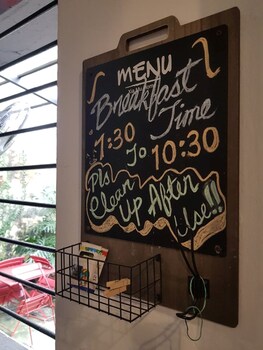 MENU
Breakfast
Time
7:30 To 10:30
Pls
Clean
Up After
Use!!